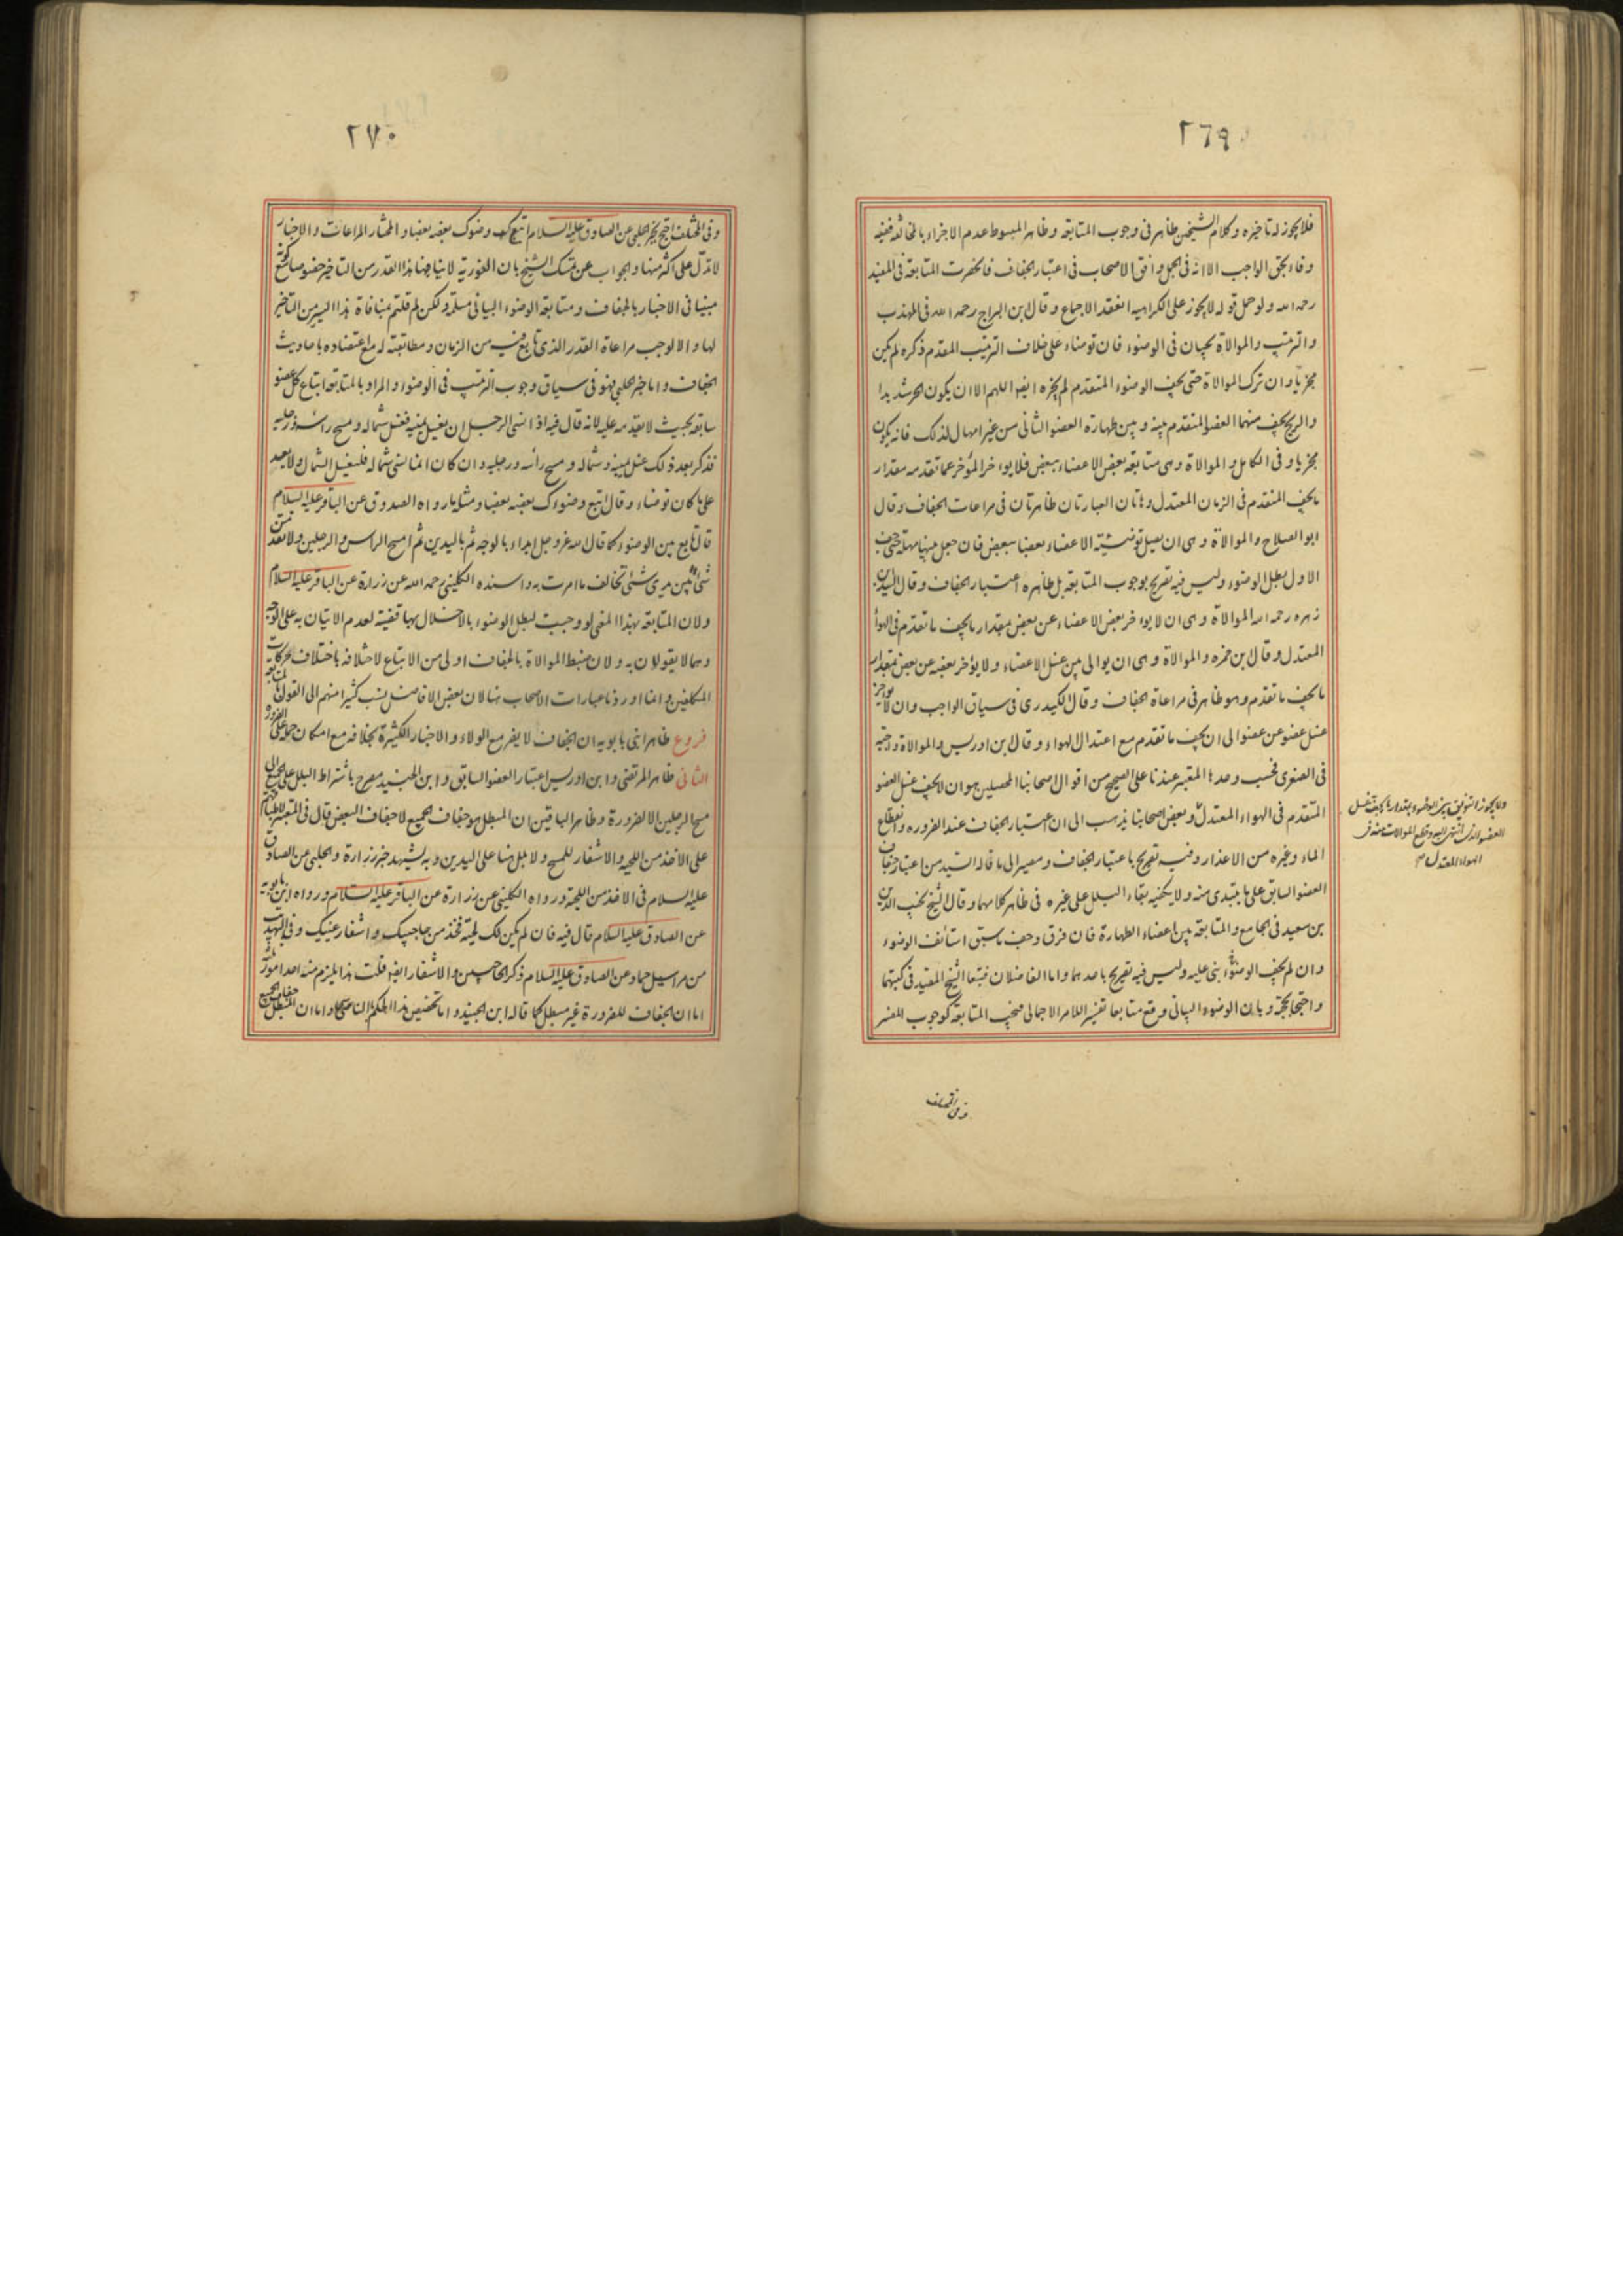 ٢٦٩
فلا يجوز له تاخيره وكلام الشيخين ظاهر فى وجوب المتابعة وظاهر المبسوط عدم الاجزاء بالمخالفة ففيه
وفاء بحق الواجب الا انه فى الجمل وافق الاصحاب فى اعتبار الجفاف فانحصرت المتابعة فى المفيد
رحمه الله ولو حمل قوله لا يجوز على الكراهيه انعقد الاجماع وقال ابن البراج رحمه الله فى المهذب
والترتيب والموالاة يجبان فى الوضوء فان توضاء على خلاف الترتيب المقدم ذكره لم يكن
مجزيا وان ترك الموالاة حتى يجف الوضوء المتقدم لم يجزه ايضا اللهم الا ان يكون الحر شديدا
والريح يجف منهما العضو المتقدم بينه وبين طهارة العضو الثانى من غير امهال لذلك فانه يكون
مجزيا وفى الكامل والموالاة وهى متابعة بعض الاعضاء ببعض فلا يواخر المؤخر عما تقدمه مقدار
ما يجف المتقدم فى الزمان المعتدل وهاتان العبارتان ظاهرتان فى مراعات الجفاف وقال
ابو الصلاح والموالاة وهى ان يصل توضئة الاعضاء بعضا ببعض فان جعل بينها مهلة حتى جف
الاول بطل الوضوء وليس فيه تصريح بوجوب المتابعة بل ظاهره اعتبار الجفاف وقال السيد بن
زهره رحمه الله الموالاة وهى ان لا يواخر بعض الاعضاء عن بعض مقدار ما يجف ما تقدم فى الهوأ
المعتدل وقال ابن حمزه والموالاة وهى ان يوالى بين غسل الاعضاء ولا يؤخر بعضه عن بعض بمقدار
ما يجف ما تقدم وهو ظاهر فى مراعاة الجفاف وقال الكيدرى فى سياق الواجب وان لا يؤخر
غسل عضو عن عضو الى ان يجف ما تقدم مع اعتدال الهواء وقال ابن ادريس والموالاة واجبة
فى الصغرى فحسب وحدها المعتبر عندنا على الصحيح من اقوال اصحابنا المحصلين هو ان لا يجف غسل العضو
المتقدم فى الهواء المعتدل وبعض اصحابنا يذهب الى ان اعتبار الجفاف عند الضروره وانقطاع
الماء وغيره من الاعذار وفيه تصريح باعتبار الجفاف ومصير الى ما قاله السيد من اعتبار جفاف
العضو السابق على ما يبتدى منه ولا يكفيه بقاء البلل على غيره فى ظاهر كلامهما وقال الشيخ نجيب الدين
بن سعيد فى الجامع والمتابعة بين اعضاء الطهارة فان فرق وجف ما سبق استانف الوضوء
وان لم يجف الوضوء بنى عليه وليس فيه تصريح باحدهما واما الفاضلان فتبعا الشيخ المفيد فى كتبهما
واحتجا بحجته وبان الوضوء البيانى وقع متابعا تفسيرا للامر الاجمالى فيجب المتابعة كوجوب المفسر
ولا يجوز التفريق بين الوضوء بمقدار ما يجف غسل
العضو الذى انتهى اليه وقطع الموالاة منه فى
الهواء المعتدل صح
وفى المختلف
٢٧٠
وفى المختلف احتج بخبر الحلبى عن الصادق عليه السلام اتبع وضوئك بعضه بعضا والمختار المراعات والاخبار
لا تدل على اكثر منها والجواب عن تمسك الشيخ بان الفورية لا ينافيها هذا القدر من التاخير
مبنيا فى الاخبار بالجفاف ومتابعة الوضوء البيانى مسلمة ولكن لم قلتم بمنافاة هذا اليسير من التاخير
لها والا لوجب مراعاة القدر الذى تابع فيه من الزمان ومطابقته له مع اعتضاده باحاديث
الجفاف واما خبر الحلبى فهو فى سياق وجوب الترتيب فى الوضوء والمراد بالمتابعة اتباع كل عضو
سابقه بحيث لا يقدمه عليه لانه قال فيه اذا نسى الرجل ان يغسل يمينه فغسل شماله ومسح راسه ورجليه
فذكر بعد ذلك غسل يمينه وشماله ومسح راسه ورجليه وان كان انما نسى شماله فليغسل الشمال ولا يعيد
على ما كان توضاء وقال اتبع وضوءك بعضه بعضا ومثله ما رواه الصدوق عن الباقر عليه السلام
قال تابع بين الوضوء كما قال الله عز وجل ابداء بالوجه ثم باليدين ثم امسح الراس والرجلين ولا تقدمن
شيئا بين يدى شئ تخالف ما امرت به واسنده الكلينى رحمه الله عن زرارة عن الباقر عليه السلام
ولان المتابعة بهذا المعنى لو وجبت لبطل الوضوء بالاخلال بها قضية لعدم الاتيان به على الوجه
وهما لا يقولان به ولان ضبط الموالاة بالجفاف اولى من الاتباع لاختلافه باختلاف حركات
المكلفين وانما اوردنا عبارات الاصحاب هنا لان بعض الافاضل نسب كثيرا منهم الى القول بالمتابعة
فروع ظاهر ابنى بابويه ان الجفاف لا يضر مع الولاء والاخبار الكثيرة بخلافه مع امكان حمله على الضرورة
الثانى ظاهر المرتضى وابن ادريس اعتبار العضو السابق وابن الجنيد مصرح باشتراط البلل على الجميع الى
مسح الرجلين الا لضرورة وظاهر الباقين ان المبطل هو جفاف الجميع لا جفاف البعض قال فى المعتبر
على الاخذ من اللحيه والاشفار للمسح ولا بلل هنا على اليدين وبه يشهد خبر زرارة والحلبى عن الصادق
عليه السلام فى الاخذ من اللحية ورواه الكلينى عن زرارة عن الباقر عليه السلام ورواه ابن بابويه
عن الصادق عليه السلام قال فيه فان لم يكن لك لحية فخذ من حاجبيك واشفار عينيك وفى التهذيب
من مراسيل حماد عن الصادق عليه السلام ذكر الحاجبين والاشفار ايضا قلت هذا يلزم منه احد امور ثلثة
اما ان الجفاف للضرورة غير مبطل كما قاله ابن الجنيد واما تخصيص هذا الحكم بالناسى واما ان المبطل جفاف الجميع